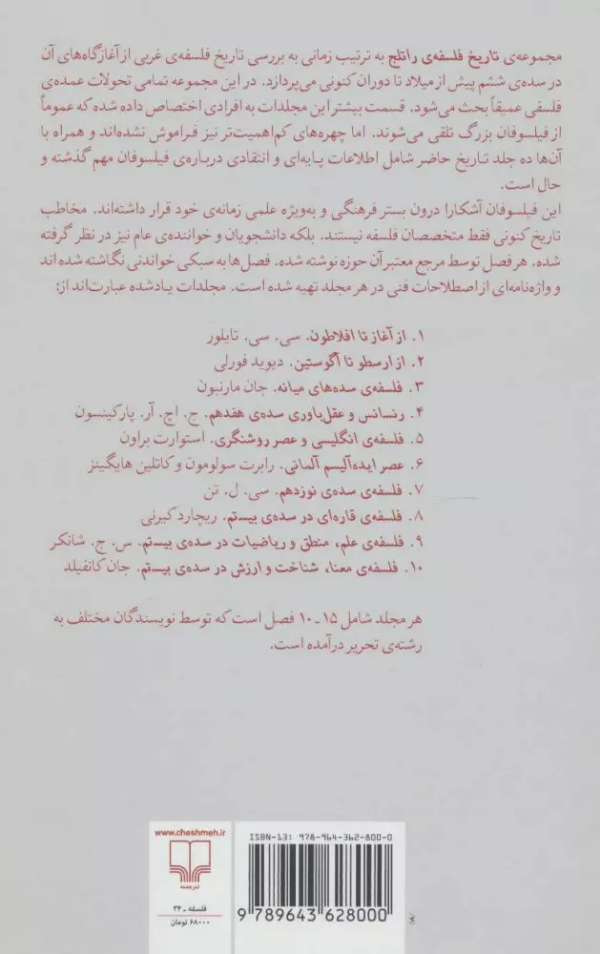 مجموعه‌ی تاریخ فلسفه‌ی راتلج به ترتیب زمانی به بررسی تاریخ فلسفه‌ی غربی از آغازگاه‌های آن
در سده‌ی ششم پیش از میلاد تا دوران کنونی می‌پردازد. در این مجموعه تمامی تحولات عمده‌ی
فلسفی عمیقاً بحث می‌شود. قسمت بیشتر این مجلدات به افرادی اختصاص داده شده که عموماً
از فیلسوفان بزرگ تلقی می‌شوند. اما چهره‌های کم‌اهمیت‌تر نیز فراموش نشده‌اند و همراه با
آن‌ها ده جلد تاریخ حاضر شامل اطلاعات پایه‌ای و انتقادی درباره‌ی فیلسوفان مهم گذشته و
حال است.
این فیلسوفان آشکارا درون بستر فرهنگی و به‌ویژه علمی زمانه‌ی خود قرار داشته‌اند. مخاطب
تاریخ کنونی فقط متخصصان فلسفه نیستند. بلکه دانشجویان و خواننده‌ی عام نیز در نظر گرفته
شده. هر فصل توسط مرجع معتبر آن حوزه نوشته شده. فصل‌ها به سبکی خواندنی نگاشته شده اند
و واژه‌نامه‌ای از اصطلاحات فنی در هر مجلد تهیه شده است. مجلدات یادشده عبارت‌اند از:
۱. از آغاز تا افلاطون. سی. سی. تایلور
۲. از ارسطو تا آگوستین. دیوید فورلی
۳. فلسفه‌ی سده‌های میانه. جان مارنبون
۴. رنسانس و عقل‌باوری سده‌ی هفدهم. ج. اچ. آر. پارکینسون
۵. فلسفه‌ی انگلیسی و عصر روشنگری. استوارت براون
۶. عصر ایده‌آلیسم آلمانی. رابرت سولومون و کاتلین هایگینز
۷. فلسفه‌ی سده‌ی نوزدهم. سی. ل. تن
۸. فلسفه‌ی قاره‌ای در سده‌ی بیستم. ریچارد کیرنی
۹. فلسفه‌ی علم، منطق و ریاضیات در سده‌ی بیستم. س. ج. شانکر
۱۰. فلسفه‌ی معنا، شناخت و ارزش در سده‌ی بیستم. جان کانفیلد
هر مجلد شامل ۱۵ـ۱۰ فصل است که توسط نویسندگان مختلف به
رشته‌ی تحریر درآمده است.
www.cheshmeh.ir
نشر چشمه
فلسفه ـ ۳۴
۶۸۰۰۰ تومان
ISBN-13: 978-964-362-800-0
9 789643 628000